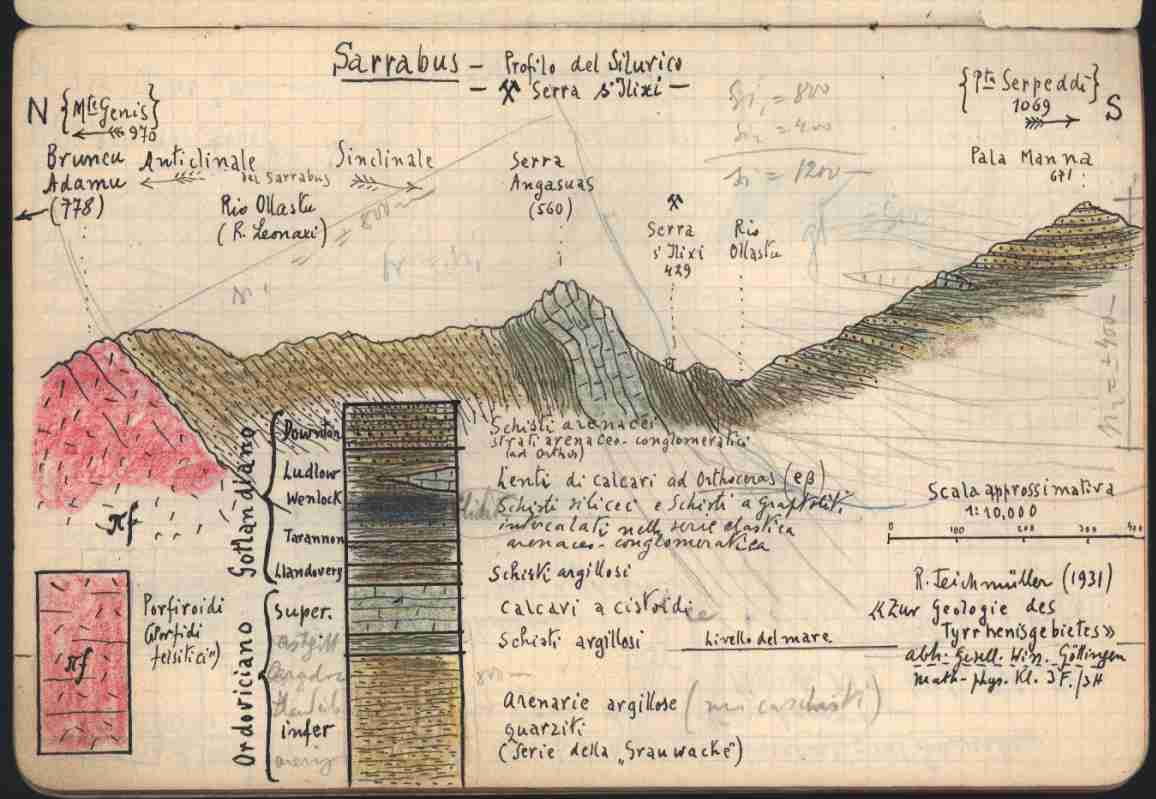 Sarrabus – Profilo del Silurico
– ⚒ Serra s'Ilixi –
N {Mte Genis}
970
{Pta Serpeddì}
1069
S
Bruncu
Adamu
(778)
Anticlinale
del Sarrabus
Sinclinale
Rio Ollastu
(R. Leonaxi)
Serra
Angasuas
(560)
Serra
s'Ilixi
429
Rio
Ollastu
Pala Manna
671
= 800
= 400
= 1200
= 800
πf
πf
Porfiroidi
("Porfidi
felsitici")
Gotlandiano
Downton
Ludlow
Wenlock
Tarannon
Llandovery
Ordoviciano
super.
infer
Schisti arenacei
strati arenaceo-conglomeratici
(ad Orthis)
Lenti di calcari ad Orthoceras (eβ)
Schisti silicei e Schisti a graptoliti
intercalati nelle serie clastica
arenaceo-conglomeratica
Schisti argillosi
Calcari a cistoidi
Schisti argillosi
800
Arenarie argillose (micaschisti)
quarziti
(serie della „Grauwacke")
Livello del mare
Scala approssimativa
1:10,000
0 100 200 300 400
R. Teichmüller (1931)
«Zur Geologie des
Tyrrhenisgebietes»
Abh. Gesell. Wiss. Göttingen
math-phys. Kl. 3F./3H